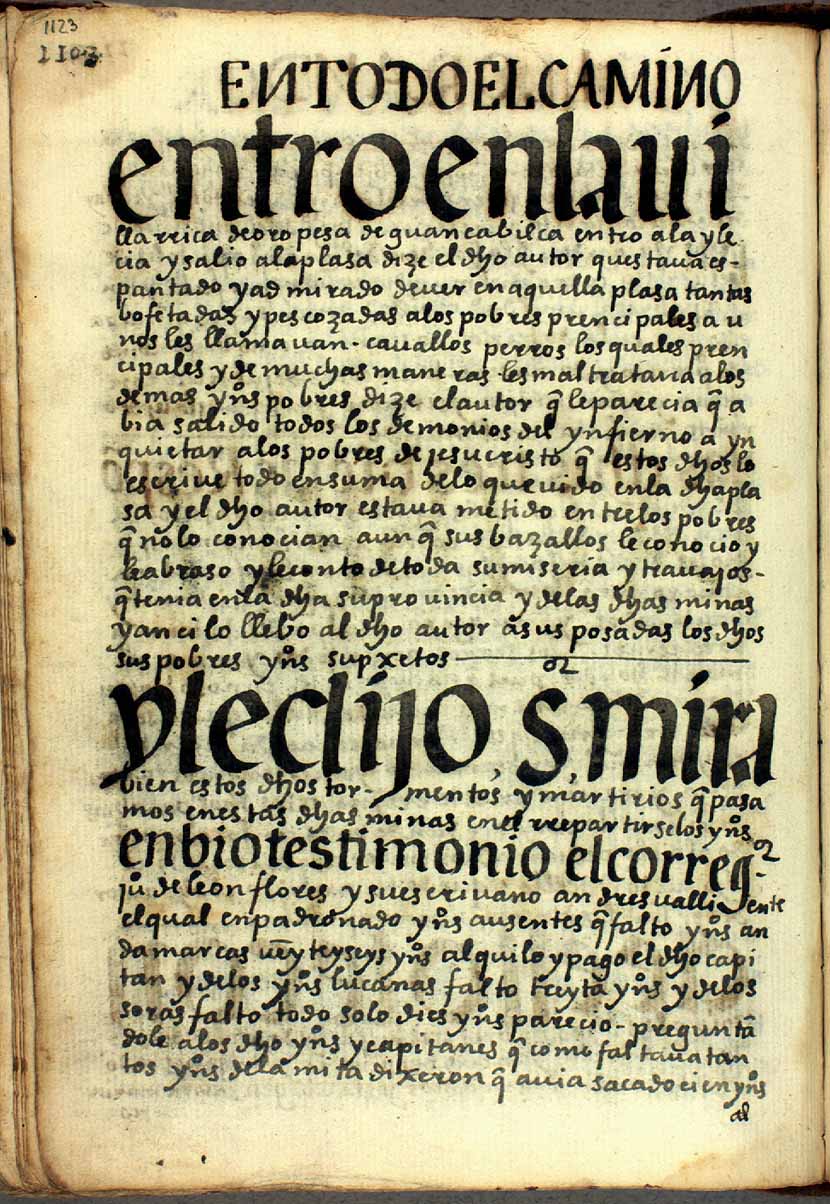 1123
1103
EN TODO EL CAMINO
entro en la ui
lla rrica de oropesa de guancabilca entro a la yle
cia y salio a la plasa dize el dho autor questaua es-
pantado y admirado de uer en aquella plasa tantas
bofetadas y pescozadas a los pobres prencipales a u
nos les llamauan - cauallos perros los quales pren
cipales y de muchas maneras les maltrataua a los
demas yn͠s pobres dize el autor q̃ le parecia q̃ a
bia salido todos los demonios del ynfierno a yn
quietar a los pobres de jesucristo q̃ estos dhos lo
escriue todo en suma de lo que uido en la dha pla
sa y el dho autor estaua metido entre los pobres
q̃ no lo conocian aunq̃ sus bazallos le conocio y
le abraso y le conto de toda su miseria y trauajos -
q̃ tenia en la dha su prouincia y de las dhas minas
y anci lo llebo al dho autor a sus posadas los dhos
sus pobres yn͠s supxetos
y le dijo, s, mira
bien estos dhos tor- mentos y martirios q̃ pasa
mos en estas dhas minas en el rrepartirselos yn͠s
enbio testimonio el correg.or
ju͠ de leon flores y su escriuano andres ualliente
el qual enpadronado yn͠s ausentes q̃ falto yn͠s an
damarcas ueynteyseys yn͠s alquilo y pago el dho capi
tan y de los yn͠s lucanas falto treyta yn͠s y de los
soras falto todo solo dies yn͠s parecio - preguntã
dole a los dho yn͠s y capitanes q̃ como faltaua tan
tos yn͠s de la mita dixeron q̃ auia sacado cien yn͠s
al